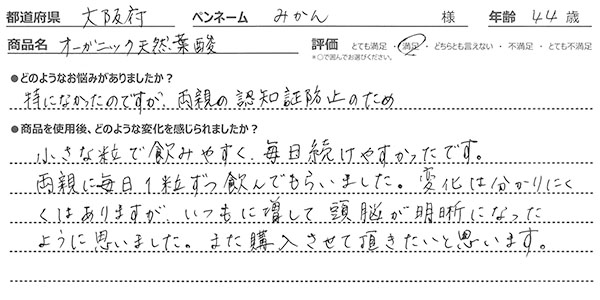 都道府県 大阪府 ペンネーム みかん 様 年齢 44 歳
商品名 オーガニック天然葉酸 評価 とても満足 ・ 満足 ・ どちらとも言えない ・ 不満足 ・ とても不満足
*○で囲んでお選びください。
●どのようなお悩みがありましたか？
特になかったのですが、両親の認知証防止のため
●商品を使用後、どのような変化を感じられましたか？
小さな粒で飲みやすく、毎日続けやすかったです。
両親に毎日1粒ずつ飲んでもらいました。変化は分かりにく
くはありますが、いつもに増して頭脳が明晰になった
ように思いました。また購入させて頂きたいと思います。